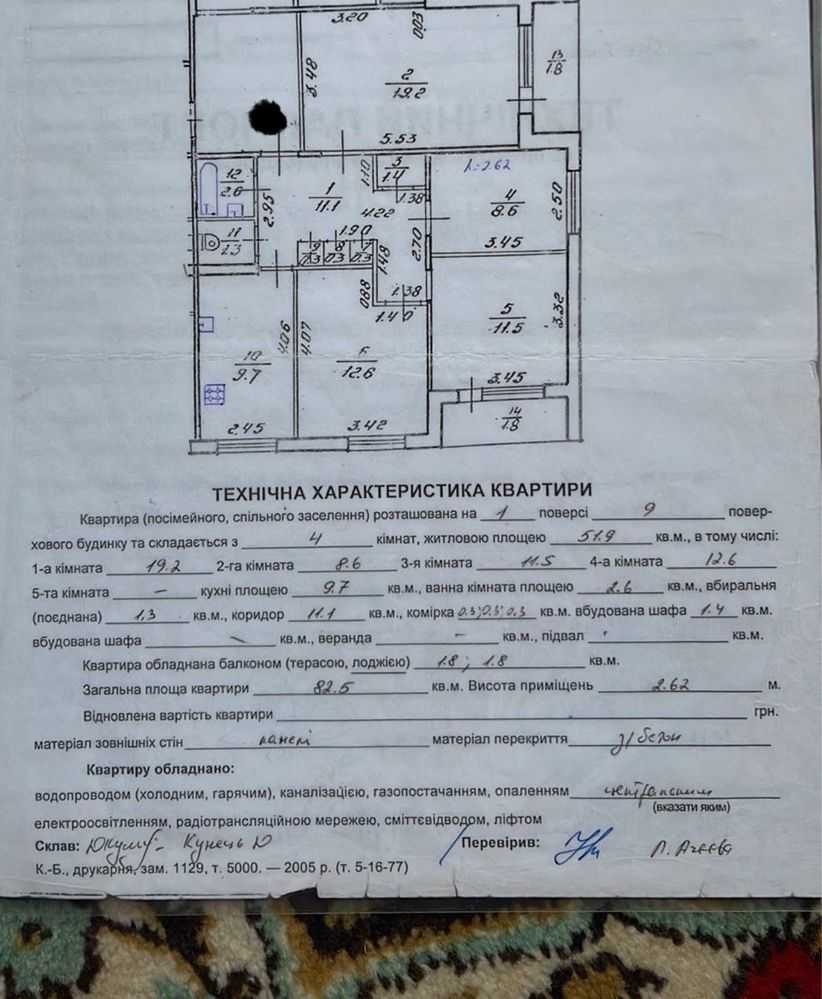 3.20
.003
3.48
2
19.2
13
1.8
5.53
12
2.6
1
11.1
2.95
1.10
3
1.4
1.38
h=2.62
4
8.6
2.50
4.22
11
1.3
1.90
9
0.3
8
0.3
7
0.3
1.48
2.70
3.45
.088
1.38
1.40
5
11.5
3.32
4.06
4.07
10
9.7
6
12.6
3.45
2.45
3.42
14
1.8
ТЕХНІЧНА ХАРАКТЕРИСТИКА КВАРТИРИ
Квартира (посімейного, спільного заселення) розташована на 1 поверсі 9 повер-
хового будинку та складається з 4 кімнат, житловою площею 51.9 кв.м., в тому числі:
1-а кімната 19.2 2-га кімната 8.6 3-я кімната 11.5 4-а кімната 12.6
5-та кімната — кухні площею 9.7 кв.м., ванна кімната площею 2.6 кв.м., вбиральня
(поєднана) 1,3 кв.м., коридор 11.1 кв.м., комірка 0.3;0.3;0.3 кв.м. вбудована шафа 1.4 кв.м.
вбудована шафа — кв.м., веранда — кв.м., підвал кв.м.
Квартира обладнана балконом (терасою, лоджією) 1.8; 1.8 кв.м.
Загальна площа квартири 82.5 кв.м. Висота приміщень 2.62 м.
Відновлена вартість квартири грн.
матеріал зовнішніх стін панелі матеріал перекриття з/бетон
Квартиру обладнано:
водопроводом (холодним, гарячим), каналізацією, газопостачанням, опаленням центральним
(вказати яким)
електроосвітленням, радіотрансляційною мережею, сміттєвідводом, ліфтом
Склав: Кунець Ю Перевірив: Л. Агеєва
К.-Б., друкарня, зам. 1129, т. 5000. — 2005 р. (т. 5-16-77)